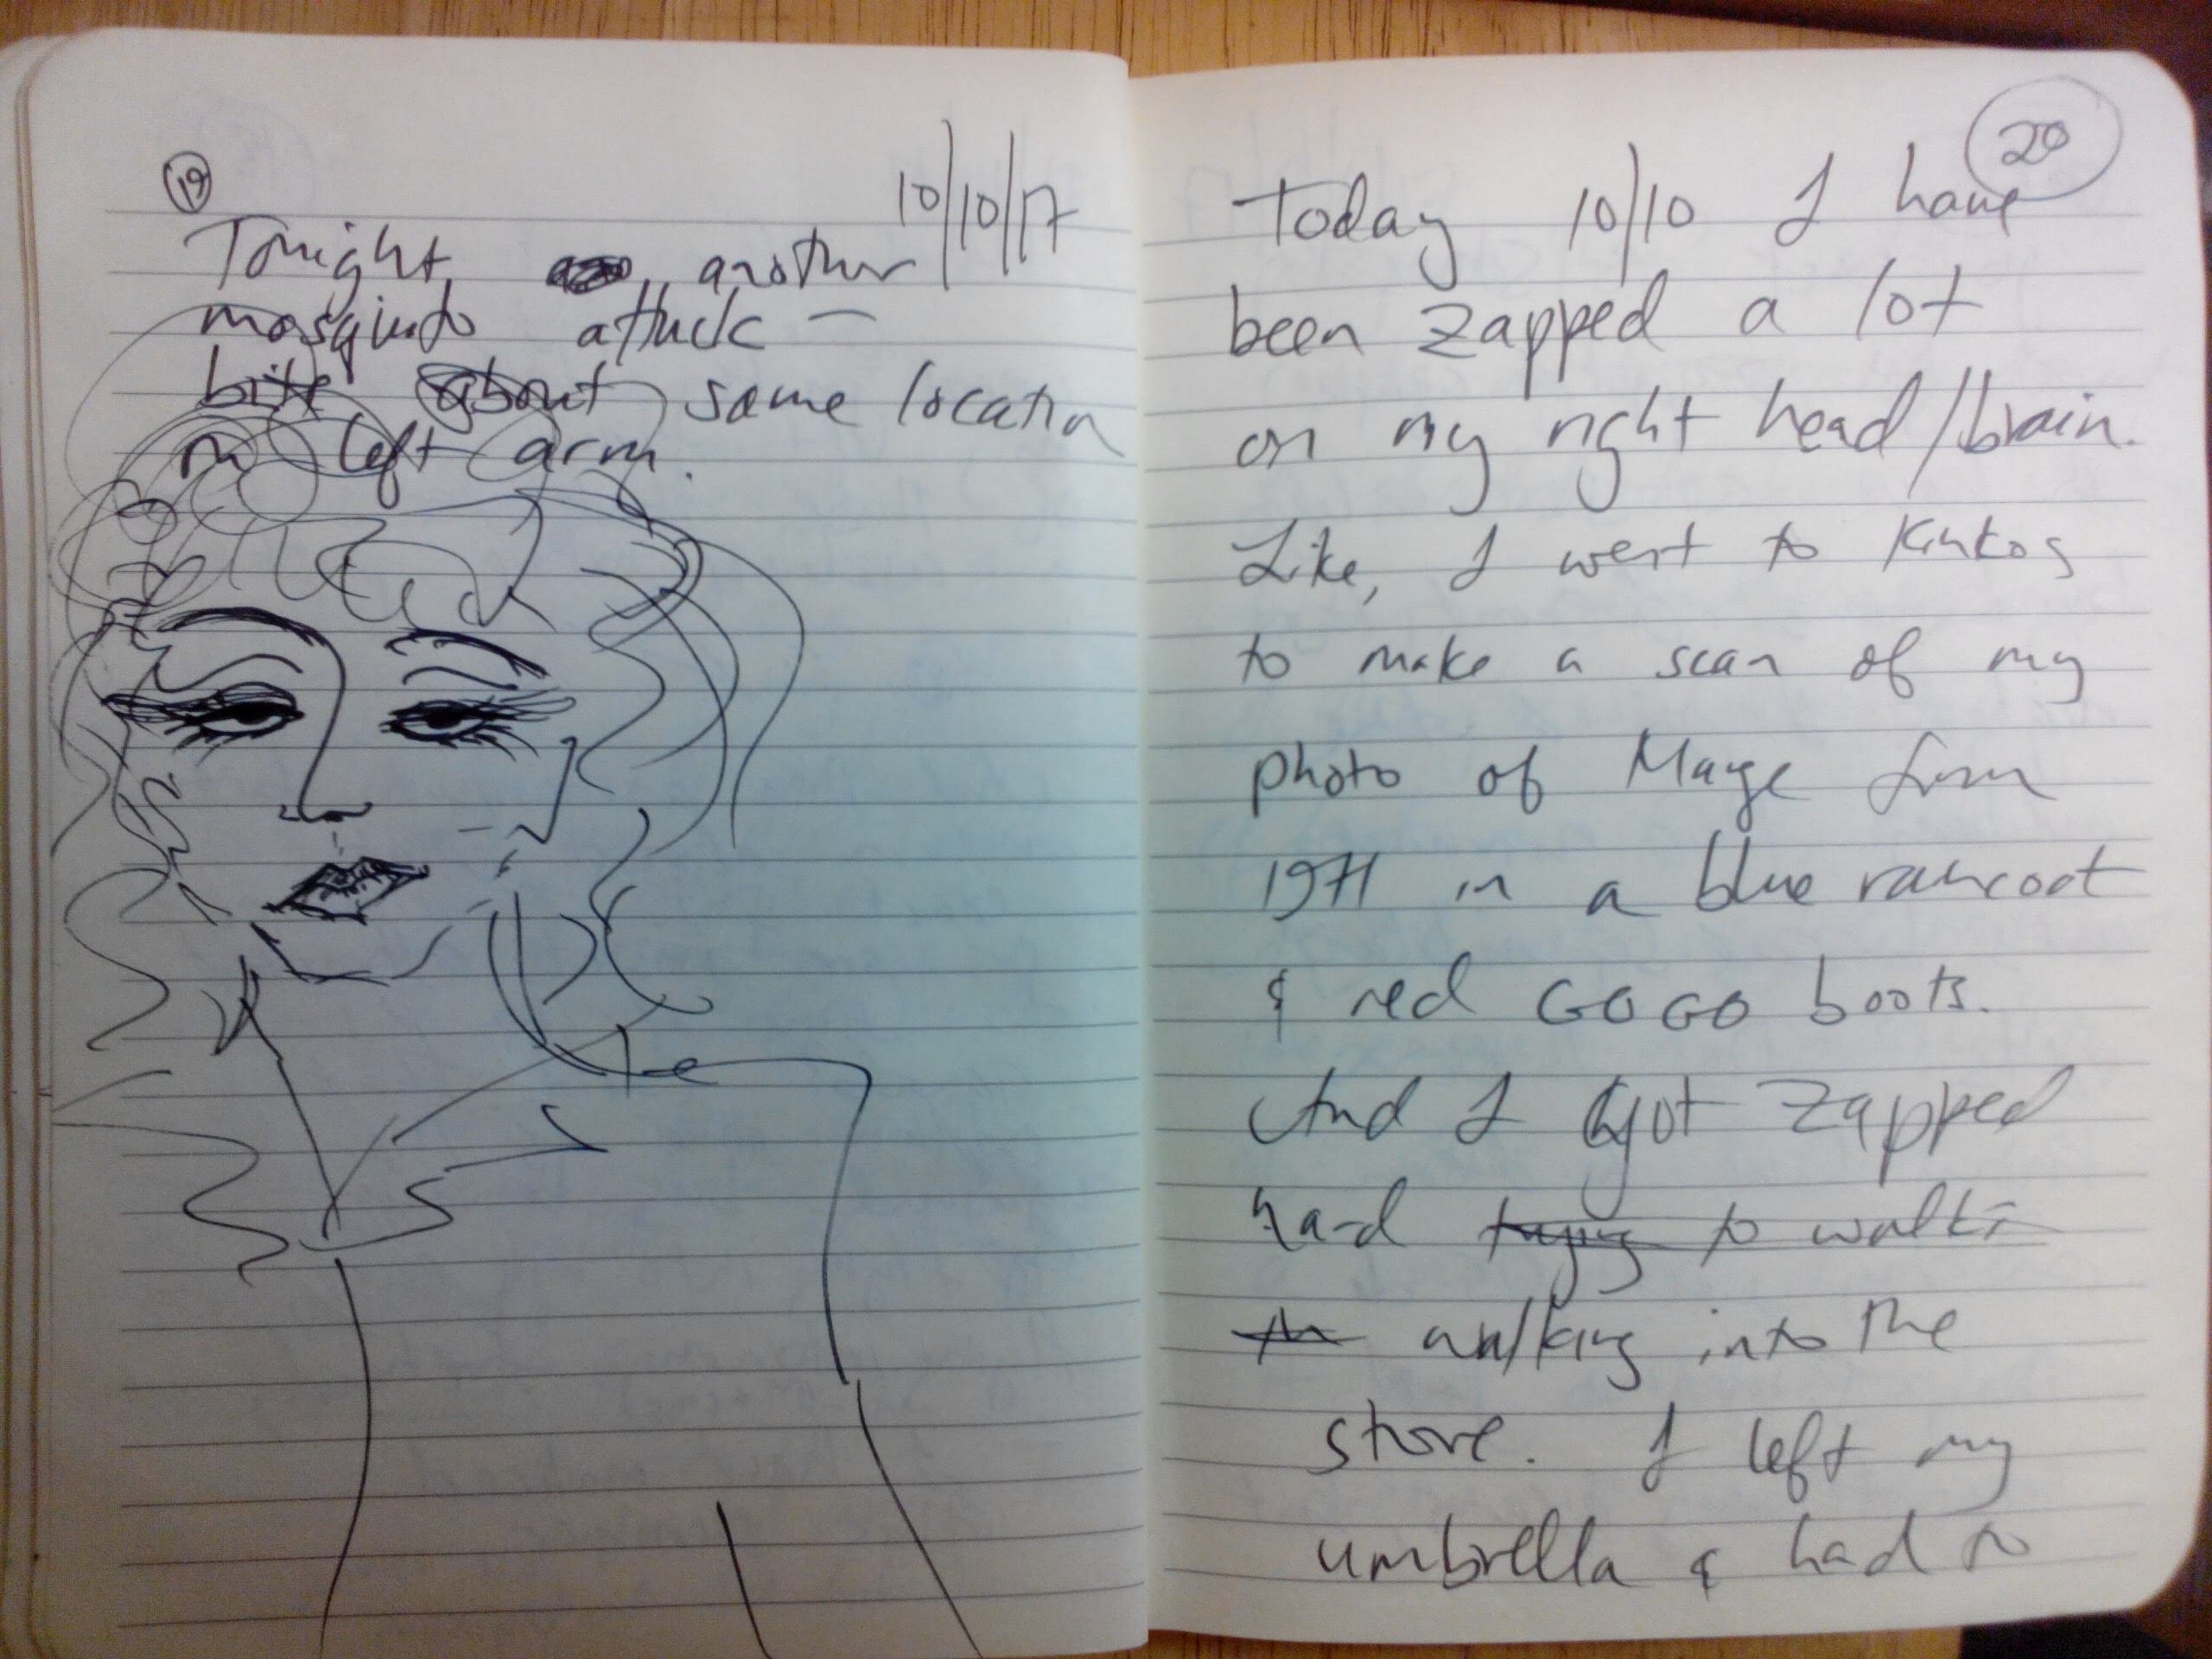 19
10/10/17
Tonight another
mosquito attack —
bite about same location
on left arm.
20
Today 10/10 I have
been zapped a lot
on my right head/brain.
Like, I went to Kinkos
to make a scan of my
photo of Marge from
1971 in a blue raincoat
& red GOGO boots.
And I got zapped
hard trying to walk
walking into the
store. I left my
umbrella & had to